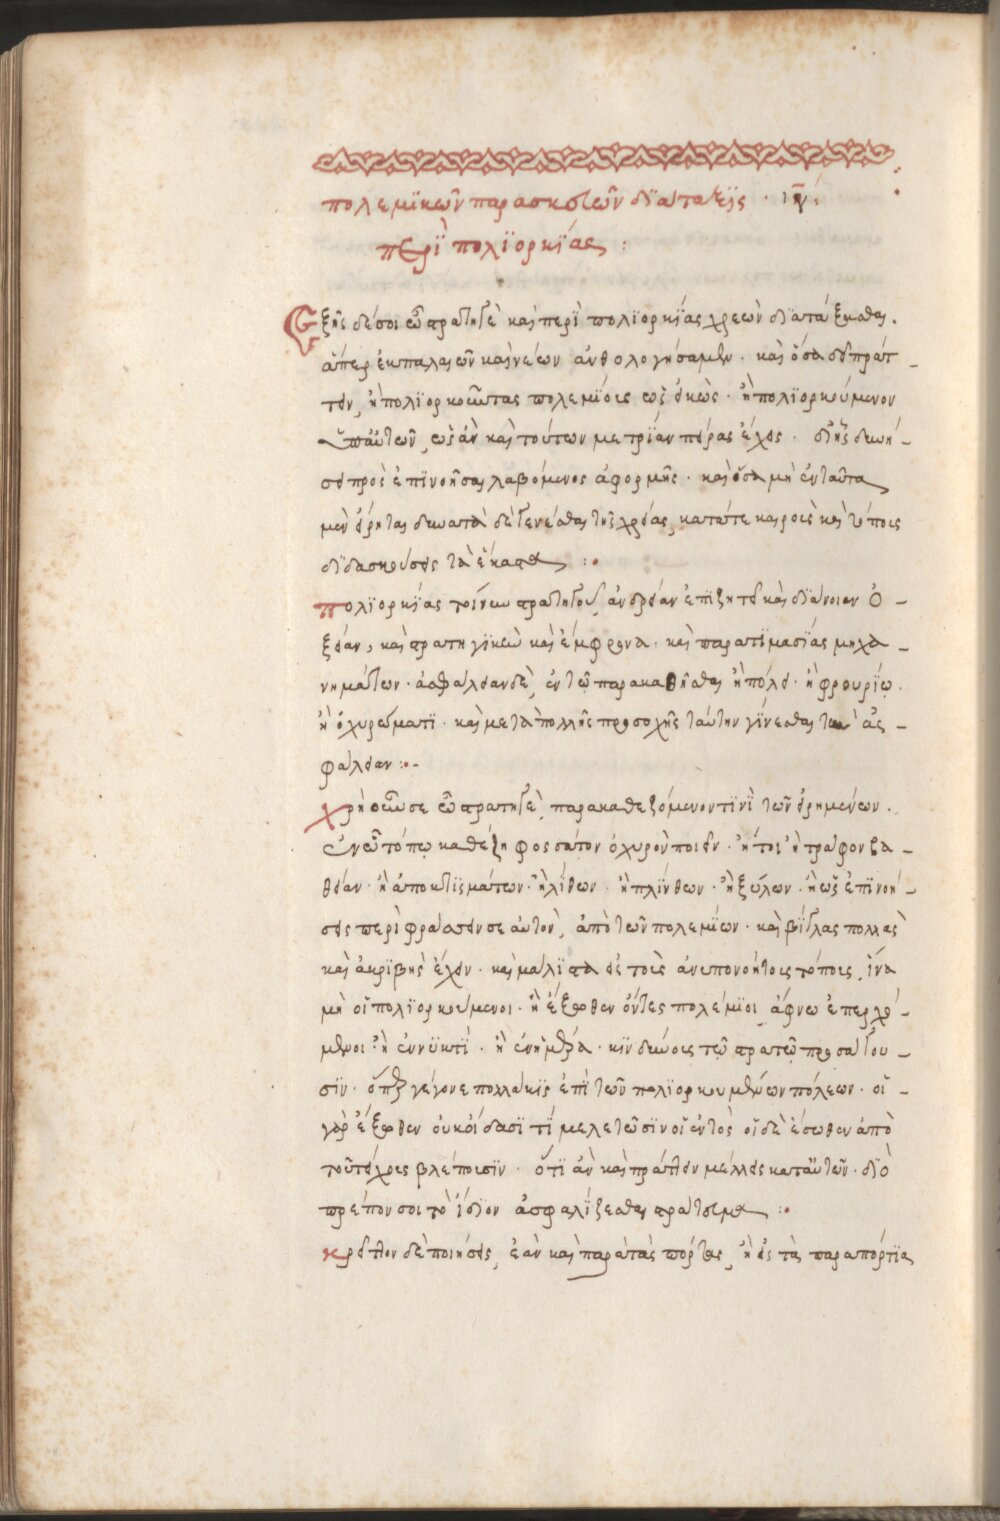 πολεμϊκῶν παρασκευῶν διάταξϊς · ιη :
περὶ πολϊορκίας :
Ἑξῆς δέ σοι ὦ στρατηγὲ καὶ περὶ πολϊορκίας χρεὼν διατάξασθαι .
ἅπερ ἐκ παλαιῶν καὶ νέων ἀνθολογήσαμεν · καὶ ὅσα δεῖ πράτ –
τειν, ἢ πολϊορκοῦντας πολεμίοις ὡς εἰκὼς · ἢ πολϊορκούμενον
ὑπ' αὐτῶν, ὡς ἂν καὶ τούτων μετρίαν πεῖραν ἔχεις · δι ἧς δυνή –
σει πρὸς ἐπϊνοῆσαι λαβόμενος ἀφορμῆς · καὶ ὅσα μὴ ἐνταῦτα
μὲν εἴρηται δυνατὰ δὲ γενέσθαι τῆς χρείας, κατά τε καιροῖς καὶ τόποις
διδασκούσης τὰ ἕκαστα :·
πολϊορκίας τοίνυν στρατηγοῦ, ἀνδρείαν ἐπϊζητεῖ καὶ διάνοιαν ὀ –
ξεῖαν, καὶ στρατηγϊκὴν καὶ ἔμφρονα · καὶ παρατϊμασίας μηχα –
νημάτων · ἀσφάλειαν δὲ, ἐν τῷ παρακαθῆσθαι ἢ πόλει · ἢ φρουρίῳ .
ἢ ὀχυρώματϊ · καὶ μετὰ πολλῆς προσοχῆς ταύτην γίνεσθαι τὴν ἀσ –
φάλειαν :·-
χρὴ οὖν σε ὦ στρατηγὲ, παρακαθεζόμενον τϊνὶ τῶν εἰρημένων .
ἐν ᾧ τόπῳ καθέζη φοσσάτον ὀχυρὸν ποιεῖν · ἤτοι ἢ τράφον βα –
θεῖαν · ἢ ἀπὸ κτϊσμάτων · ἢ λίθων · ἢ πλίνθων · ἢ ξύλων · ἢ ὡς ἐπϊνοή –
σεις περϊφράσσειν σεαυτὸν, ἀπὸ τῶν πολεμίων · καὶ βίγλας πολλὰς
καὶ ἀκρϊβὴς ἔχειν · καὶ μάλϊστα εἰς τοῖς ἀνυπονοήτοις τόποις, ἵνα
μὴ οἱ πολϊορκούμενοι · ἢ ἔξωθεν ὄντες πολέμϊοι, ἄφνω ἐπερχό –
μενοι ἢ ἐν νϋκτὶ · ἢ ἐν ἡμέρα · κϊνδύνοις τῷ στρατῷ προσάγου –
σϊν · ὅπερ γέγονε πολλάκϊς ἐπὶ τῶν πολϊορκουμένων πόλεων · οἱ –
γὰρ ἔξωθεν οὐκ οἴδασϊ τί μελετῶσϊν οἱ ἐντὸς οἱ δὲ ἔσωθεν ἀπὸ
τοῦ τείχοις βλέπουσϊν · ὅτϊ ἂν καὶ πράττειν μέλλεις κατ' αὐτῶν · διὸ
πρέπον σοι τὸ ἴδιον ἀσφαλίζεσθαι στράτευμα :·
κρεῖττον δὲ ποιήσεις, ἐὰν καὶ παρὰ τὰς πόρτας, ἢ εἰς τὰ παραπόρτϊα